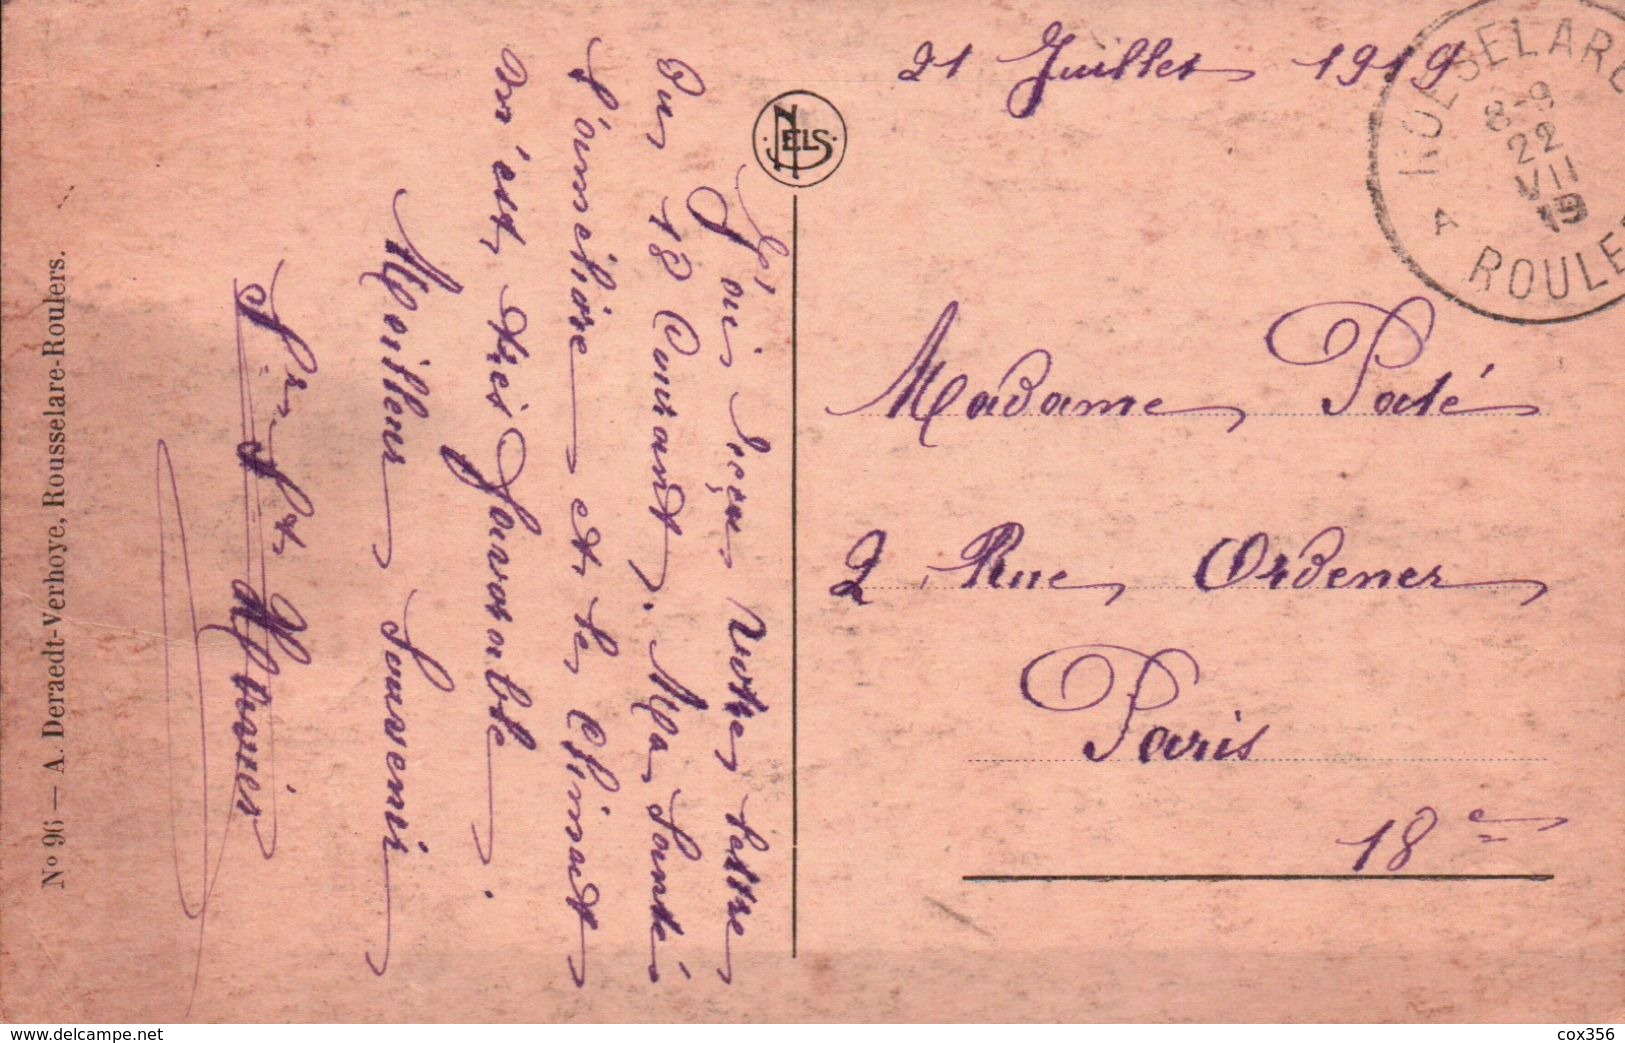 21 Juillet 1919
ROESELARE
8-9
22
VII
19
A
ROULE
NELS
J'ai reçu Votre lettre
Du 18 Courant, Ma Santé
S'améliore et le Climat
m'est très favorable.
Meilleur Souvenir
Madame Paté
2, Rue Ordener
Paris
18e
No 96 — A. Deraedt-Verhoye, Rousselare-Roulers.
www.delcampe.net
cox356